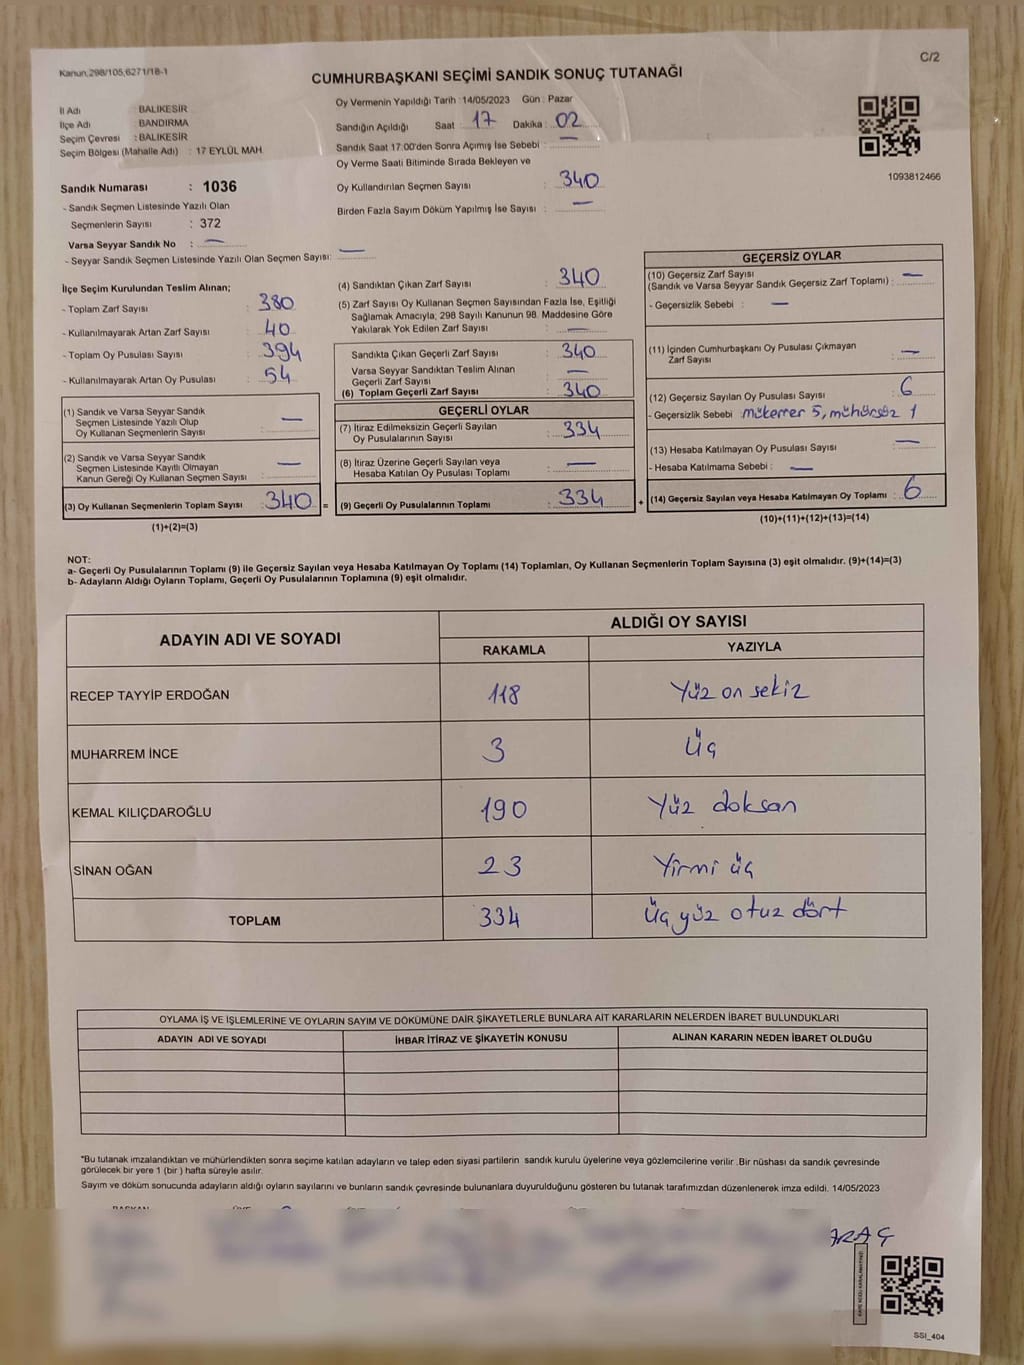 Kanun;298/105,6271/18-1
C/2
CUMHURBAŞKANI SEÇİMİ SANDIK SONUÇ TUTANAĞI
İl Adı : BALIKESİR
İlçe Adı : BANDIRMA
Seçim Çevresi : BALIKESİR
Seçim Bölgesi (Mahalle Adı) : 17 EYLÜL MAH.
Oy Vermenin Yapıldığı Tarih : 14/05/2023 Gün : Pazar
Sandığın Açıldığı Saat : 17 Dakika : 02
Sandık Saat 17:00'den Sonra Açılmış İse Sebebi : —
Oy Verme Saati Bitiminde Sırada Bekleyen ve
Oy Kullandırılan Seçmen Sayısı : 340
Birden Fazla Sayım Döküm Yapılmış İse Sayısı : —
1093812466
Sandık Numarası : 1036
- Sandık Seçmen Listesinde Yazılı Olan
Seçmenlerin Sayısı : 372
Varsa Seyyar Sandık No : —
- Seyyar Sandık Seçmen Listesinde Yazılı Olan Seçmen Sayısı: —
İlçe Seçim Kurulundan Teslim Alınan;
- Toplam Zarf Sayısı : 380
- Kullanılmayarak Artan Zarf Sayısı : 40
- Toplam Oy Pusulası Sayısı : 394
- Kullanılmayarak Artan Oy Pusulası : 54
(1) Sandık ve Varsa Seyyar Sandık
Seçmen Listesinde Yazılı Olup
Oy Kullanan Seçmenlerin Sayısı : —
(2) Sandık ve Varsa Seyyar Sandık
Seçmen Listesinde Kayıtlı Olmayan
Kanun Gereği Oy Kullanan Seçmen Sayısı : —
(3) Oy Kullanan Seçmenlerin Toplam Sayısı : 340 =
(1)+(2)=(3)
(4) Sandıktan Çıkan Zarf Sayısı : 340
(5) Zarf Sayısı Oy Kullanan Seçmen Sayısından Fazla İse, Eşitliği
Sağlamak Amacıyla; 298 Sayılı Kanunun 98. Maddesine Göre
Yakılarak Yok Edilen Zarf Sayısı : —
Sandıkta Çıkan Geçerli Zarf Sayısı : 340
Varsa Seyyar Sandıktan Teslim Alınan
Geçerli Zarf Sayısı : —
(6) Toplam Geçerli Zarf Sayısı : 340
GEÇERLİ OYLAR
(7) İtiraz Edilmeksizin Geçerli Sayılan
Oy Pusulalarının Sayısı : 334
(8) İtiraz Üzerine Geçerli Sayılan veya
Hesaba Katılan Oy Pusulası Toplamı : —
(9) Geçerli Oy Pusulalarının Toplamı : 334 +
GEÇERSİZ OYLAR
(10) Geçersiz Zarf Sayısı
(Sandık ve Varsa Seyyar Sandık Geçersiz Zarf Toplamı) : —
- Geçersizlik Sebebi : —
(11) İçinden Cumhurbaşkanı Oy Pusulası Çıkmayan
Zarf Sayısı : —
(12) Geçersiz Sayılan Oy Pusulası Sayısı : 6
- Geçersizlik Sebebi : mükerrer 5, mühürsüz 1
(13) Hesaba Katılmayan Oy Pusulası Sayısı : —
- Hesaba Katılmama Sebebi : —
(14) Geçersiz Sayılan veya Hesaba Katılmayan Oy Toplamı : 6
(10)+(11)+(12)+(13)=(14)
NOT:
a- Geçerli Oy Pusulalarının Toplamı (9) ile Geçersiz Sayılan veya Hesaba Katılmayan Oy Toplamı (14) Toplamları, Oy Kullanan Seçmenlerin Toplam Sayısına (3) eşit olmalıdır. (9)+(14)=(3)
b- Adayların Aldığı Oyların Toplamı, Geçerli Oy Pusulalarının Toplamına (9) eşit olmalıdır.
ADAYIN ADI VE SOYADI ALDIĞI OY SAYISI
RAKAMLA YAZIYLA
RECEP TAYYİP ERDOĞAN 118 Yüz on sekiz
MUHARREM İNCE 3 Üç
KEMAL KILIÇDAROĞLU 190 Yüz doksan
SİNAN OĞAN 23 Yirmi üç
TOPLAM 334 Üç yüz otuz dört
OYLAMA İŞ VE İŞLEMLERİNE VE OYLARIN SAYIM VE DÖKÜMÜNE DAİR ŞİKAYETLERLE BUNLARA AİT KARARLARIN NELERDEN İBARET BULUNDUKLARI
ADAYIN ADI VE SOYADI İHBAR İTİRAZ VE ŞİKAYETİN KONUSU ALINAN KARARIN NEDEN İBARET OLDUĞU
*Bu tutanak imzalandıktan ve mühürlendikten sonra seçime katılan adayların ve talep eden siyasi partilerin sandık kurulu üyelerine veya gözlemcilerine verilir .Bir nüshası da sandık çevresinde
görülecek bir yere 1 (bir ) hafta süreyle asılır.
Sayım ve döküm sonucunda adayların aldığı oyların sayılarını ve bunların sandık çevresinde bulunanlara duyurulduğunu gösteren bu tutanak tarafımızdan düzenlenerek imza edildi. 14/05/2023
ARAÇ
SSI_404